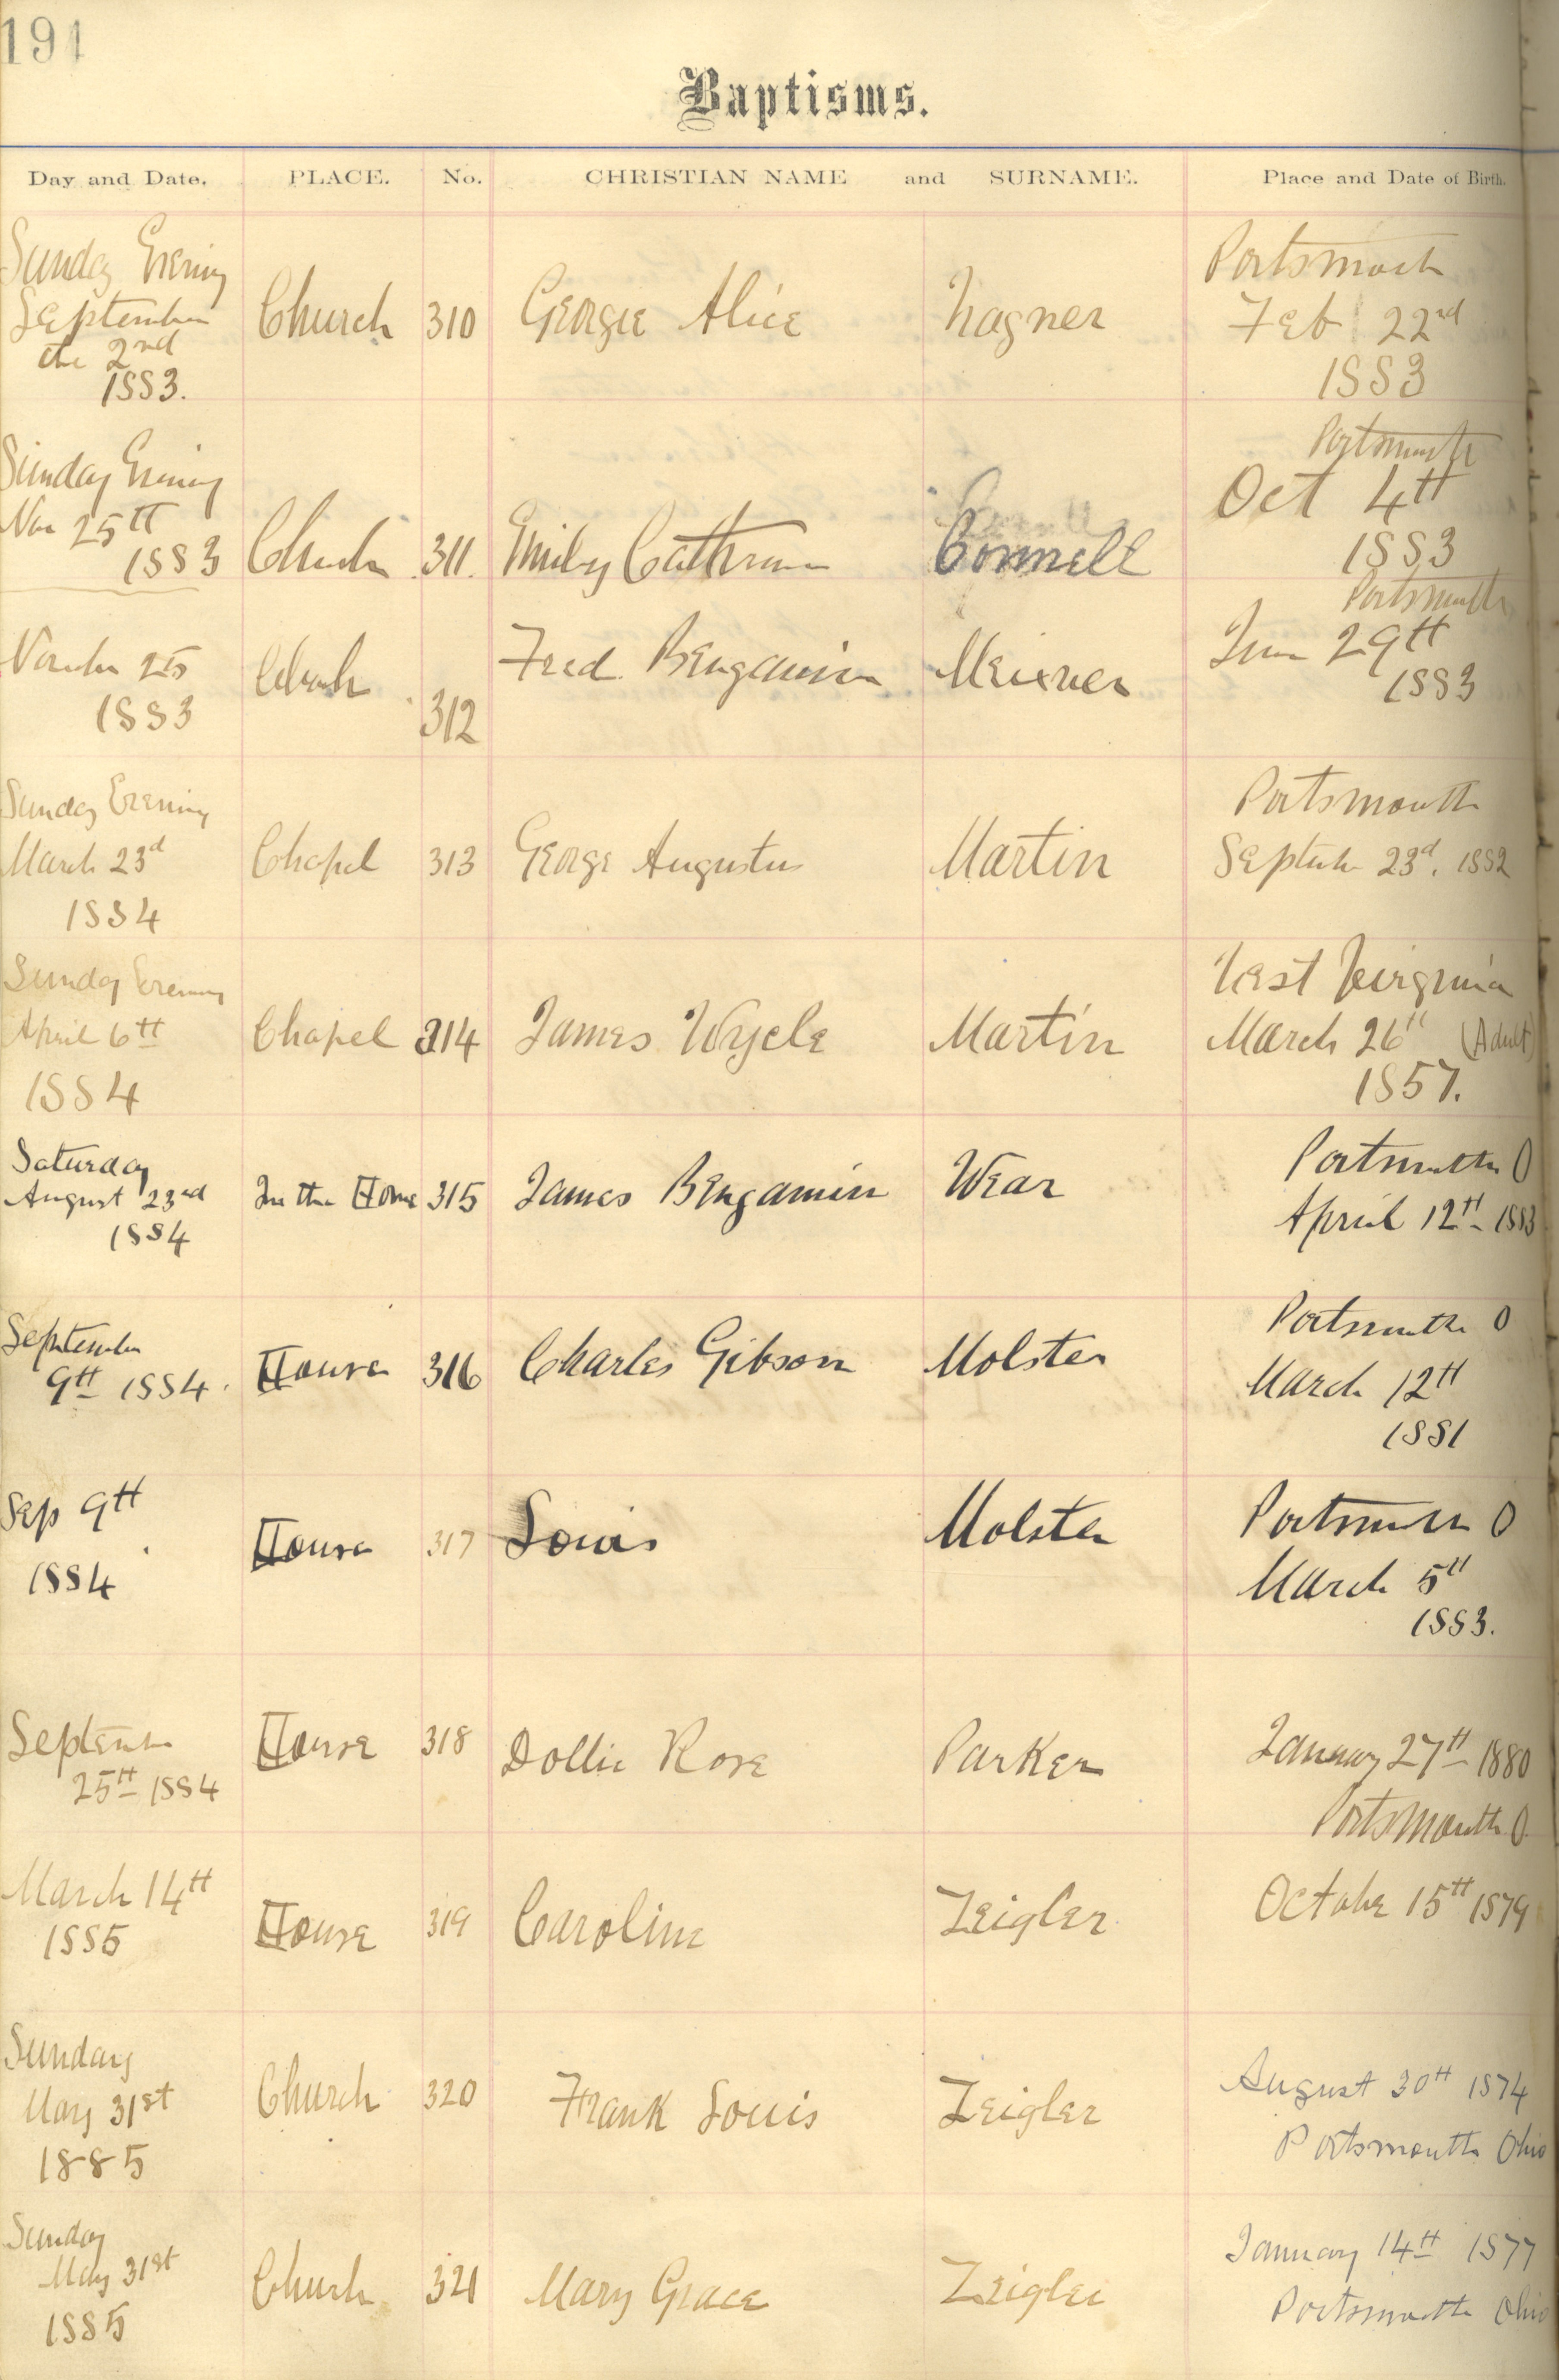 191
Baptisms.
Day and Date. PLACE. No. CHRISTIAN NAME and SURNAME. Place and Date of Birth.
Sunday Evening
September
the 2nd
1883.
Church 310 George Alice Wagner
Portsmouth
Feb 22nd
1883
Sunday Evening
Nov 25th
1883
Church 311. Emily Cathrine Connell
Portsmouth
Oct 4th
1883
November 25
1883
Church
312
Fred Bengamin Meixner
Portsmouth
June 29th
1883
Sunday Evening
March 23d
1884
Chapel 313 George Augustus Martin
Portsmouth
September 23d. 1882
Sunday Evening
April 6th
1884
Chapel 314 James Wycle Martin
West Virginia
March 26th (Adult)
1857.
Saturday
August 23rd
1884
In the Home 315 James Bengamin Wear
Portsmouth O
April 12th 1883
September
9th 1884.
House 316 Charles Gibson Molster
Portsmouth O
March 12th
1881
Sep 9th
1884
House 317 Louis Molster
Portsmouth O
March 5th
1883.
September
25th 1884
House 318 Dollie Rose Parker
January 27th 1880
Portsmouth O.
March 14th
1885
House 319 Caroline Zeigler
October 15th 1879
Sunday
May 31st
1885
Church 320 Frank Louis Zeigler
August 30th 1874
Portsmouth Ohio
Sunday
May 31st
1885
Church 321 Mary Grace Zeigler
January 14th 1877
Portsmouth Ohio